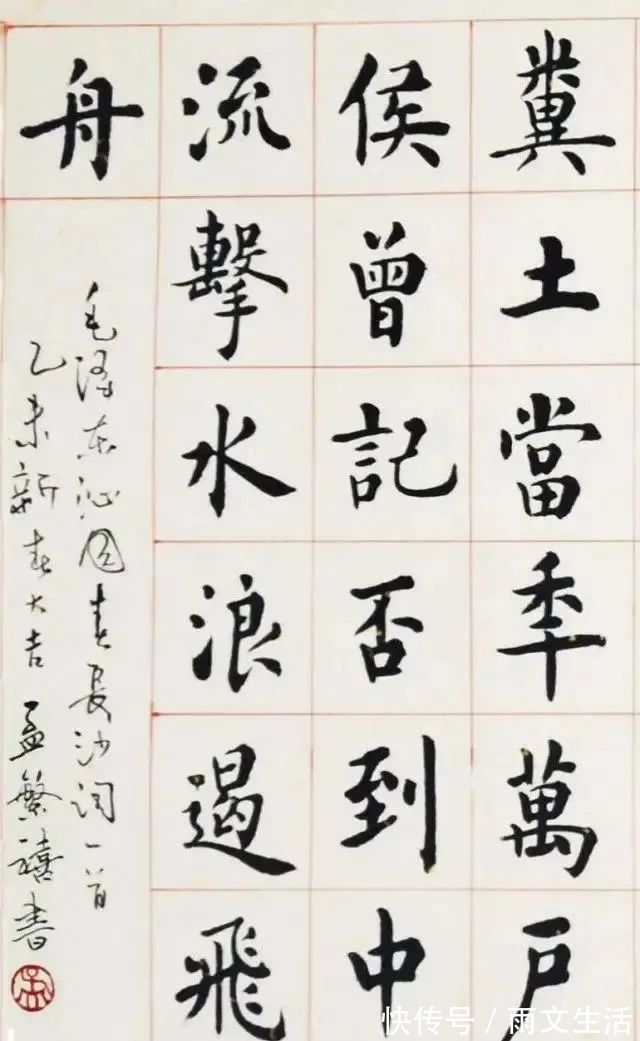 糞土當年萬戶
侯曾記否到中
流擊水浪遏飛
舟
毛泽东沁园春长沙词一首
乙未新春大吉 孟繁禧书
孟
快传号/雨文生活